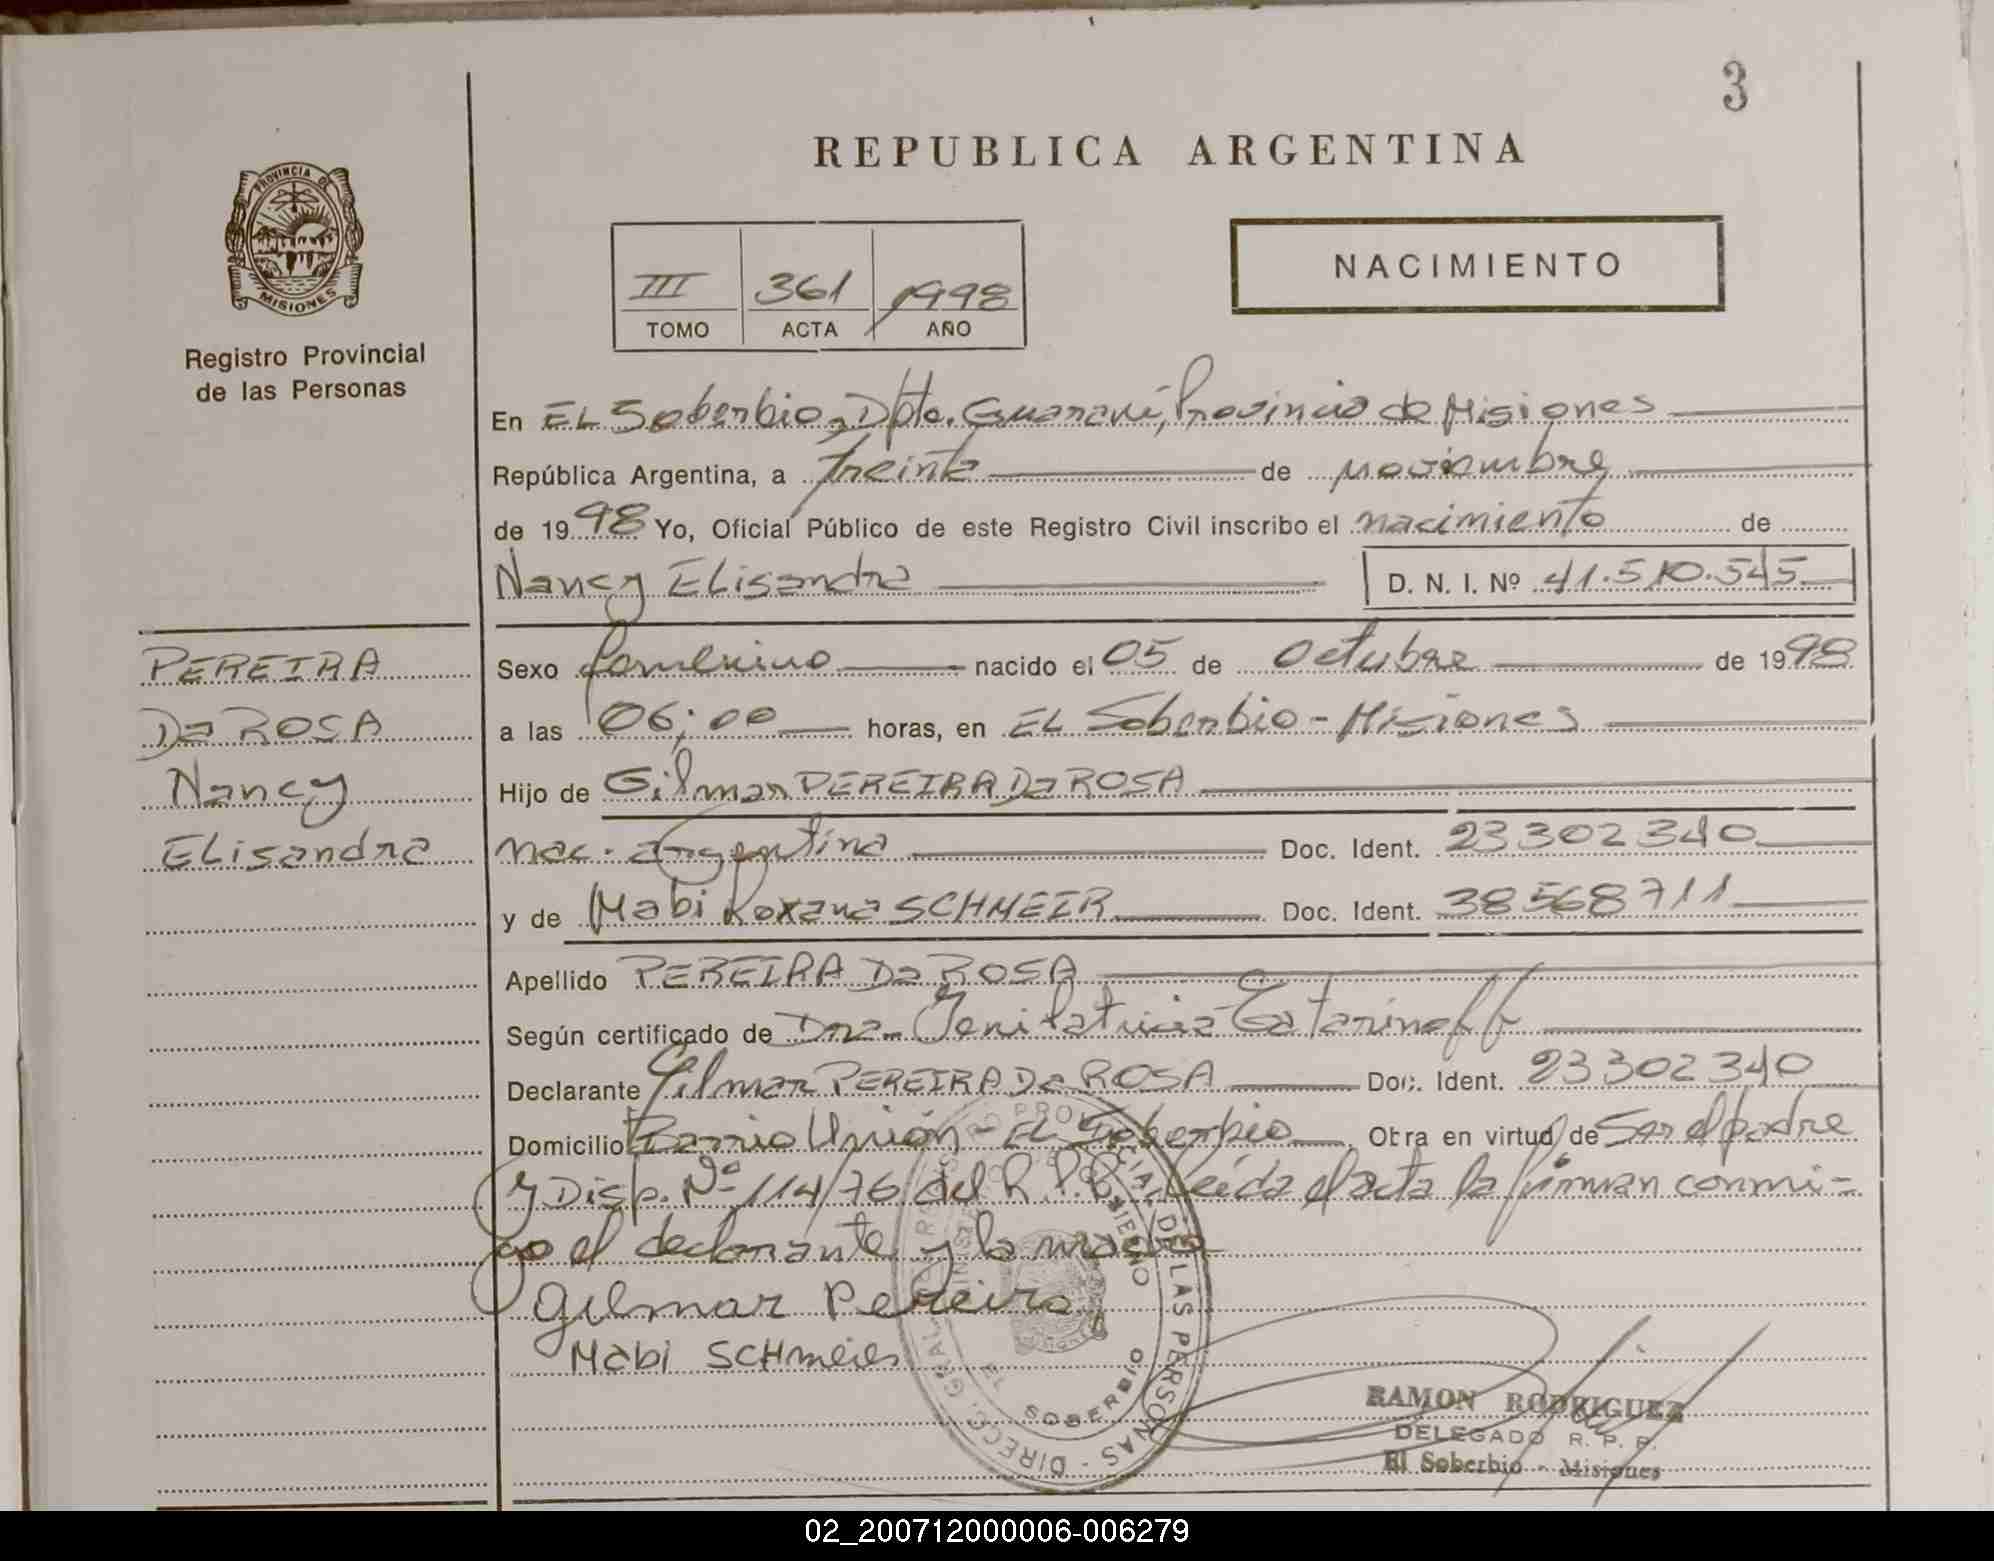 3
REPUBLICA ARGENTINA
PROVINCIA DE
MISIONES
III 361 1998
TOMO ACTA AÑO
NACIMIENTO
Registro Provincial
de las Personas
En EL Soberbio, Dpto. Guaraní, Provincia de Misiones
República Argentina, a treinta de noviembre
de 1998 Yo, Oficial Público de este Registro Civil inscribo el nacimiento de
Nancy ELisandra D. N. I. Nº 41.510.545
PEREIRA
Da ROSA
Nancy
ELisandra
Sexo femenino nacido el 05 de Octubre de 1998
a las 06:00 horas, en EL Soberbio - Misiones
Hijo de Gilmar PEREIRA Da ROSA
nac. argentina Doc. Ident. 23302340
y de Mabi Roxana SCHMEIR Doc. Ident. 38568711
Apellido PEREIRA Da ROSA
Según certificado de Dra. Patricia Catarinoff
Declarante Gilmar PEREIRA Da ROSA Doc. Ident. 23302340
Domicilio Barrio Unión - EL Soberbio Otra en virtud de Ser el padre
y Disp. Nº 114/76 del R.P.P. Leída el acta la firman conmi-
go el declarante y la madre
Gilmar Pereira
Mabi SCHmeier
DIRECC. GRAL. PROVINCIAL DE LAS PERSONAS
SOBERBIO
RAMON RODRIGUEZ
DELEGADO R. P. P.
El Soberbio - Misiones
02_200712000006-006279